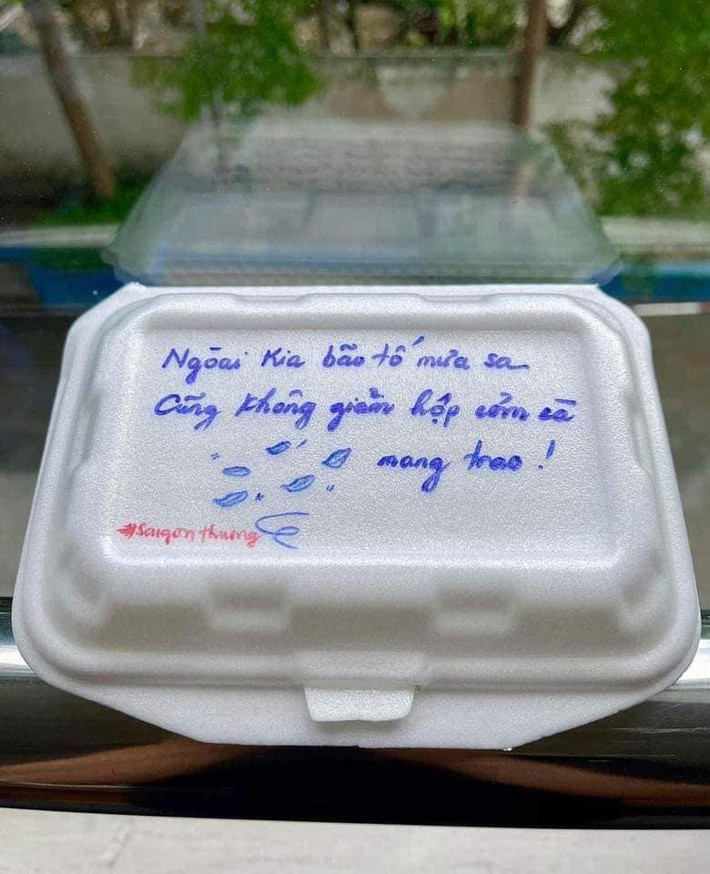 Ngoài kia bão tố mưa sa
Cũng không giảm hộp cơm cà
mang trao !
#Saigonthuong